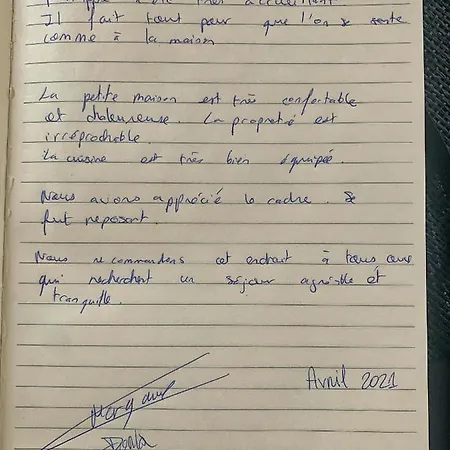 très accueillant
Il fait tout pour que l'on se sente
comme à la maison
La petite maison est très confortable
et chaleureuse. La propreté est
irréprochable.
La cuisine est très bien équipée.
Nous avons apprécié le cadre. Ce
fut reposant.
Nous recommandons cet endroit à tous ceux
qui recherchent un séjour agréable et
tranquille.
Avril 2021
Margaux